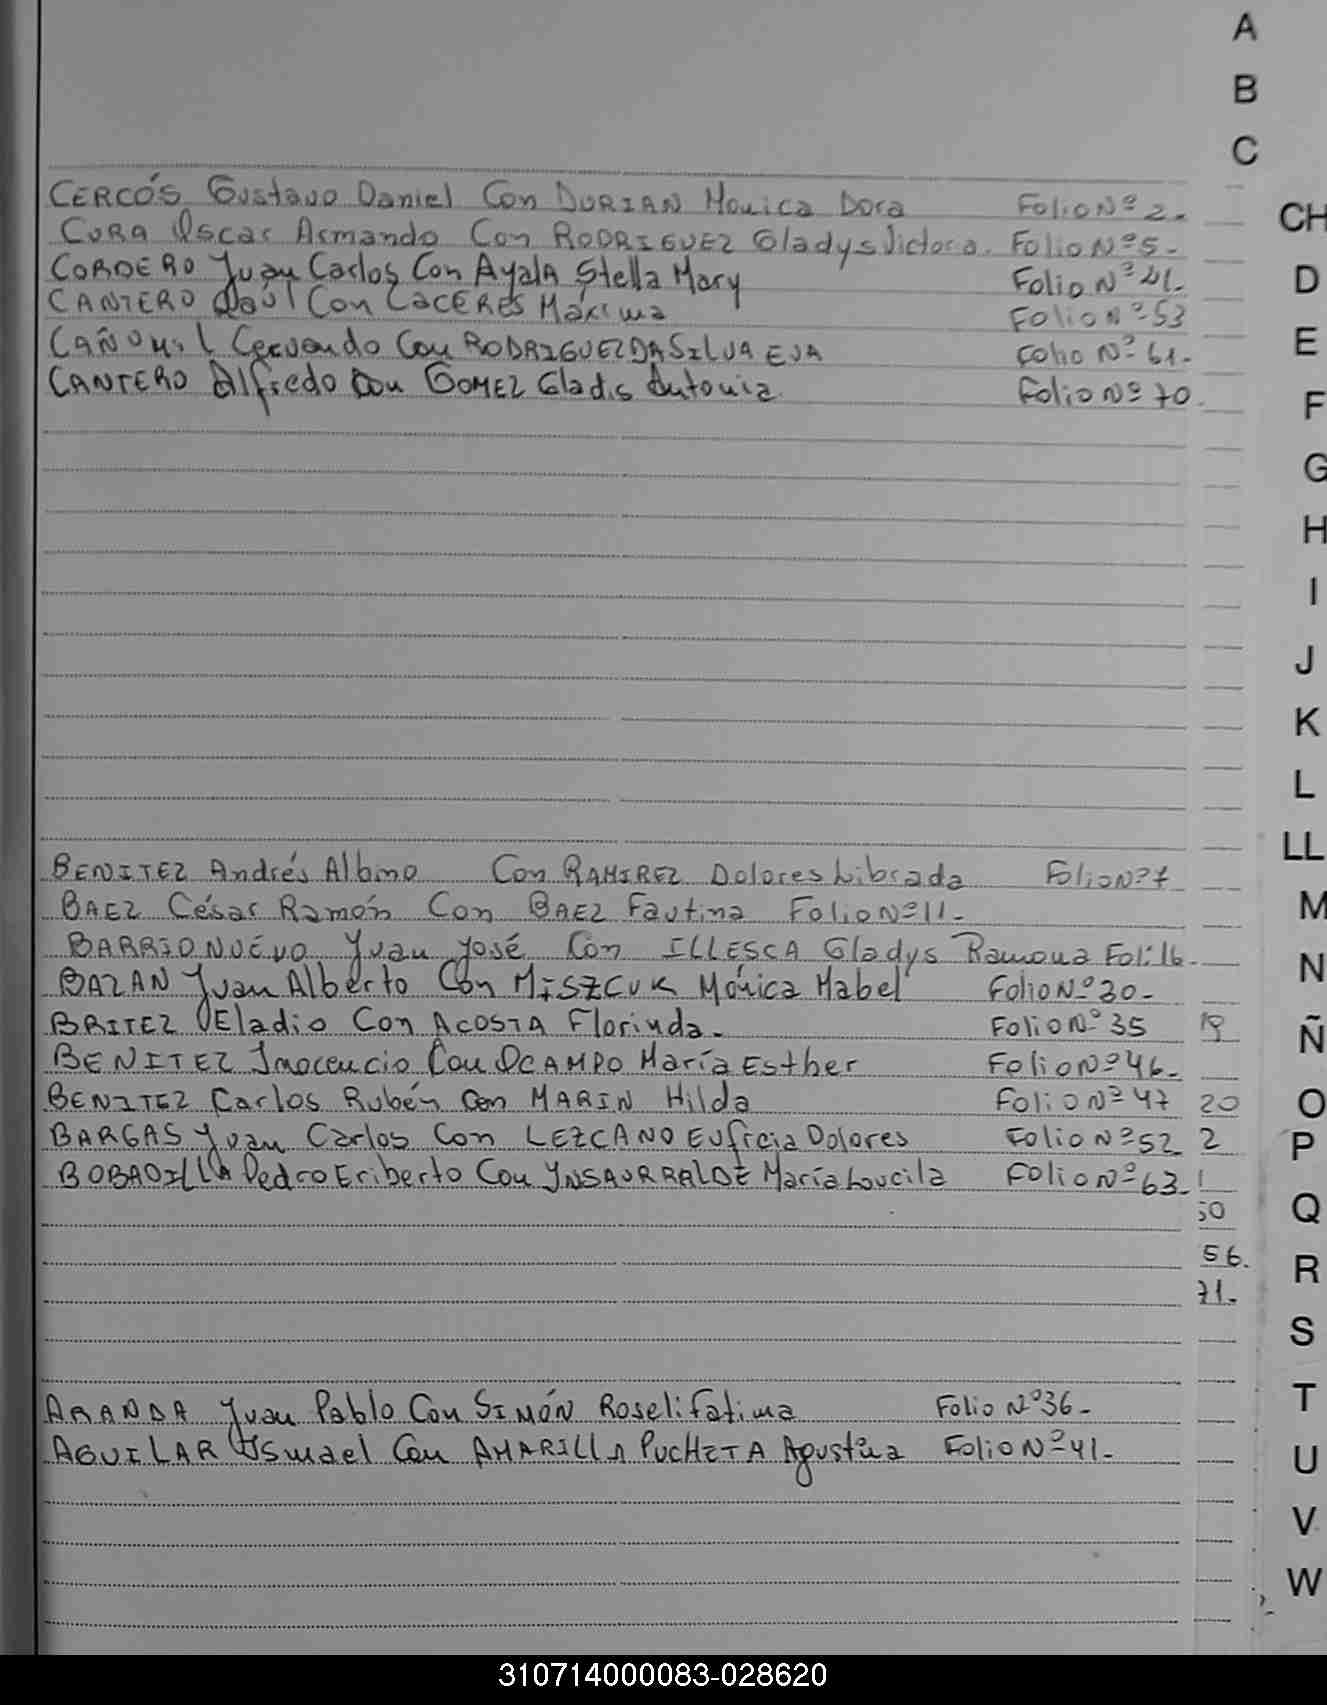 A
B
C
CERCÓS Gustavo Daniel Con DURIAN Monica Dora Folio Nº 2.-
CH
CURA Oscar Armando Con RODRIGUEZ Gladys Victora. Folio Nº 5-
CORDERO Juan Carlos Con AyalA Stella Mary Folio Nº 41.-
D
CANTERO Raúl Con CACERES Máxima Folio Nº 53
CAÑUMIL Cervando Con RODRIGUEZ DA SILVA EVA Folio Nº 61.-
E
CANTERO Alfredo Con GOMEZ Gladis Antonia. Folio Nº 70.
F
G
H
I
J
K
L
LL
BENITEZ Andrés Albino Con RAMIREZ Dolores Librada Folio Nº 7
BAEZ César Ramón Con BAEZ Fautina Folio Nº 11.-
M
BARRIONUEVO Juan José Con ILLESCA Gladys Ramona Fol: 16.-
N
BAZAN Juan Alberto Con MISZCUK Mónica Mabel Folio Nº 30.-
BRITEZ Eladio Con ACOSTA Florinda.- Folio Nº 35 19
Ñ
BENITEZ Inocencio Con OCAMPO María Esther Folio Nº 46.-
BENITEZ Carlos Rubén Con MARIN Hilda Folio Nº 47 20
O
BARGAS Juan Carlos Con LEZCANO Eufrcia Dolores Folio Nº 52 2
P
BOBADILLA Pedro Eriberto Con YNSAURRALDE María Loucila Folio Nº 63.- 1
50
Q
56.
R
71.-
S
ARANDA Juan Pablo Con SIMÓN Roseli Fatima Folio Nº 36.-
T
AGUILAR Ismael Con AMARILLA PUCHETA Agustina Folio Nº 41.-
U
V
W
310714000083-028620